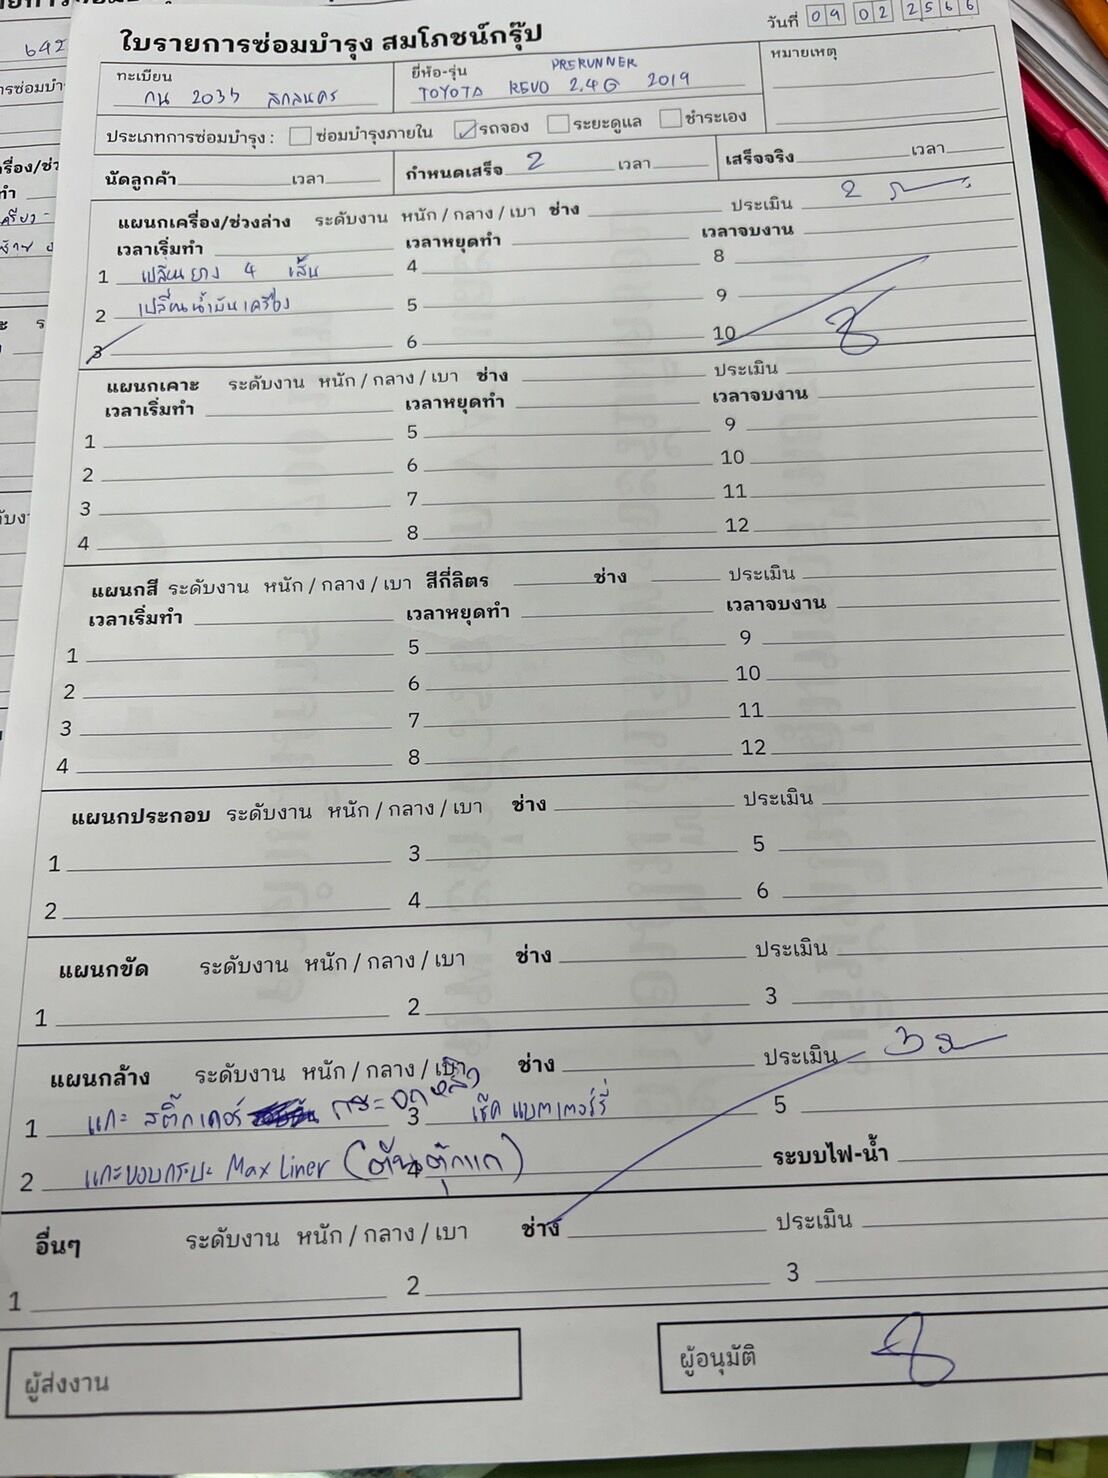 ใบรายการซ่อมบำรุง สมโภชน์กรุ๊ป
วันที่ 09 02 2566
642
ทะเบียน กน 2035 สกลนคร
ยี่ห้อ-รุ่น TOYOTA REVO PRERUNNER 2.4G 2019
หมายเหตุ
ประเภทการซ่อมบำรุง : ซ่อมบำรุงภายใน ✓ รถจอง ระยะดูแล ชำระเอง
นัดลูกค้า เวลา กำหนดเสร็จ 2 เวลา เสร็จจริง เวลา
แผนกเครื่อง/ช่วงล่าง ระดับงาน หนัก / กลาง / เบา ช่าง ประเมิน 2
เวลาเริ่มทำ เวลาหยุดทำ เวลาจบงาน
1 เปลี่ยนยาง 4 เส้น 4 8
2 เปลี่ยนน้ำมันเครื่อง 5 9
3 6 10
แผนกเคาะ ระดับงาน หนัก / กลาง / เบา ช่าง ประเมิน
เวลาเริ่มทำ เวลาหยุดทำ เวลาจบงาน
1 5 9
2 6 10
3 7 11
4 8 12
แผนกสี ระดับงาน หนัก / กลาง / เบา สีกี่ลิตร ช่าง ประเมิน
เวลาเริ่มทำ เวลาหยุดทำ เวลาจบงาน
1 5 9
2 6 10
3 7 11
4 8 12
แผนกประกอบ ระดับงาน หนัก / กลาง / เบา ช่าง ประเมิน
1 3 5
2 4 6
แผนกขัด ระดับงาน หนัก / กลาง / เบา ช่าง ประเมิน
1 2 3
แผนกล้าง ระดับงาน หนัก / กลาง / เบา ช่าง ประเมิน 3
1 แกะ สติ๊กเกอร์ กระจกหลัง 3 เช็คแบตเตอร์รี่ 5
2 แกะขอบกระบะ Max Liner (ตีนตุ๊กแก) 4 ระบบไฟ-น้ำ
อื่นๆ ระดับงาน หนัก / กลาง / เบา ช่าง ประเมิน
1 2 3
ผู้ส่งงาน ผู้อนุมัติ